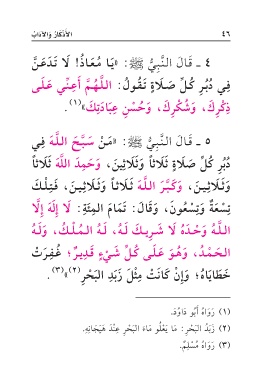 ٤٦ الأَذْكَارُ وَالآدَابُ
٤ ـ قَالَ النَّبِيُّ ﷺ: «يَا مُعَاذُ! لَا تَدَعَنَّ
فِي دُبُرِ كُلِّ صَلَاةٍ تَقُولُ: اللَّهُمَّ أَعِنِّي عَلَى
ذِكْرِكَ، وَشُكْرِكَ، وَحُسْنِ عِبَادَتِكَ»(١).
٥ ـ قَالَ النَّبِيُّ ﷺ: «مَنْ سَبَّحَ اللَّهَ فِي
دُبُرِ كُلِّ صَلَاةٍ ثَلَاثاً وَثَلَاثِينَ، وَحَمِدَ اللَّهَ ثَلَاثاً
وَثَلَاثِينَ، وَكَبَّرَ اللَّهَ ثَلَاثاً وَثَلَاثِينَ، فَتِلْكَ
تِسْعَةٌ وَتِسْعُونَ، وَقَالَ: تَمَامَ المِئَةِ: لَا إِلَهَ إِلَّا
اللَّهُ وَحْدَهُ لَا شَرِيكَ لَهُ، لَهُ المُلْكُ، وَلَهُ
الحَمْدُ، وَهُوَ عَلَى كُلِّ شَيْءٍ قَدِيرٌ؛ غُفِرَتْ
خَطَايَاهُ؛ وَإِنْ كَانَتْ مِثْلَ زَبَدِ البَحْرِ(٢)»(٣).
(١) رَوَاهُ أَبُو دَاوُدَ.
(٢) زَبَدُ البَحْرِ: مَا يَعْلُو مَاءَ البَحْرِ عِنْدَ هَيَجَانِهِ.
(٣) رَوَاهُ مُسْلِمٌ.